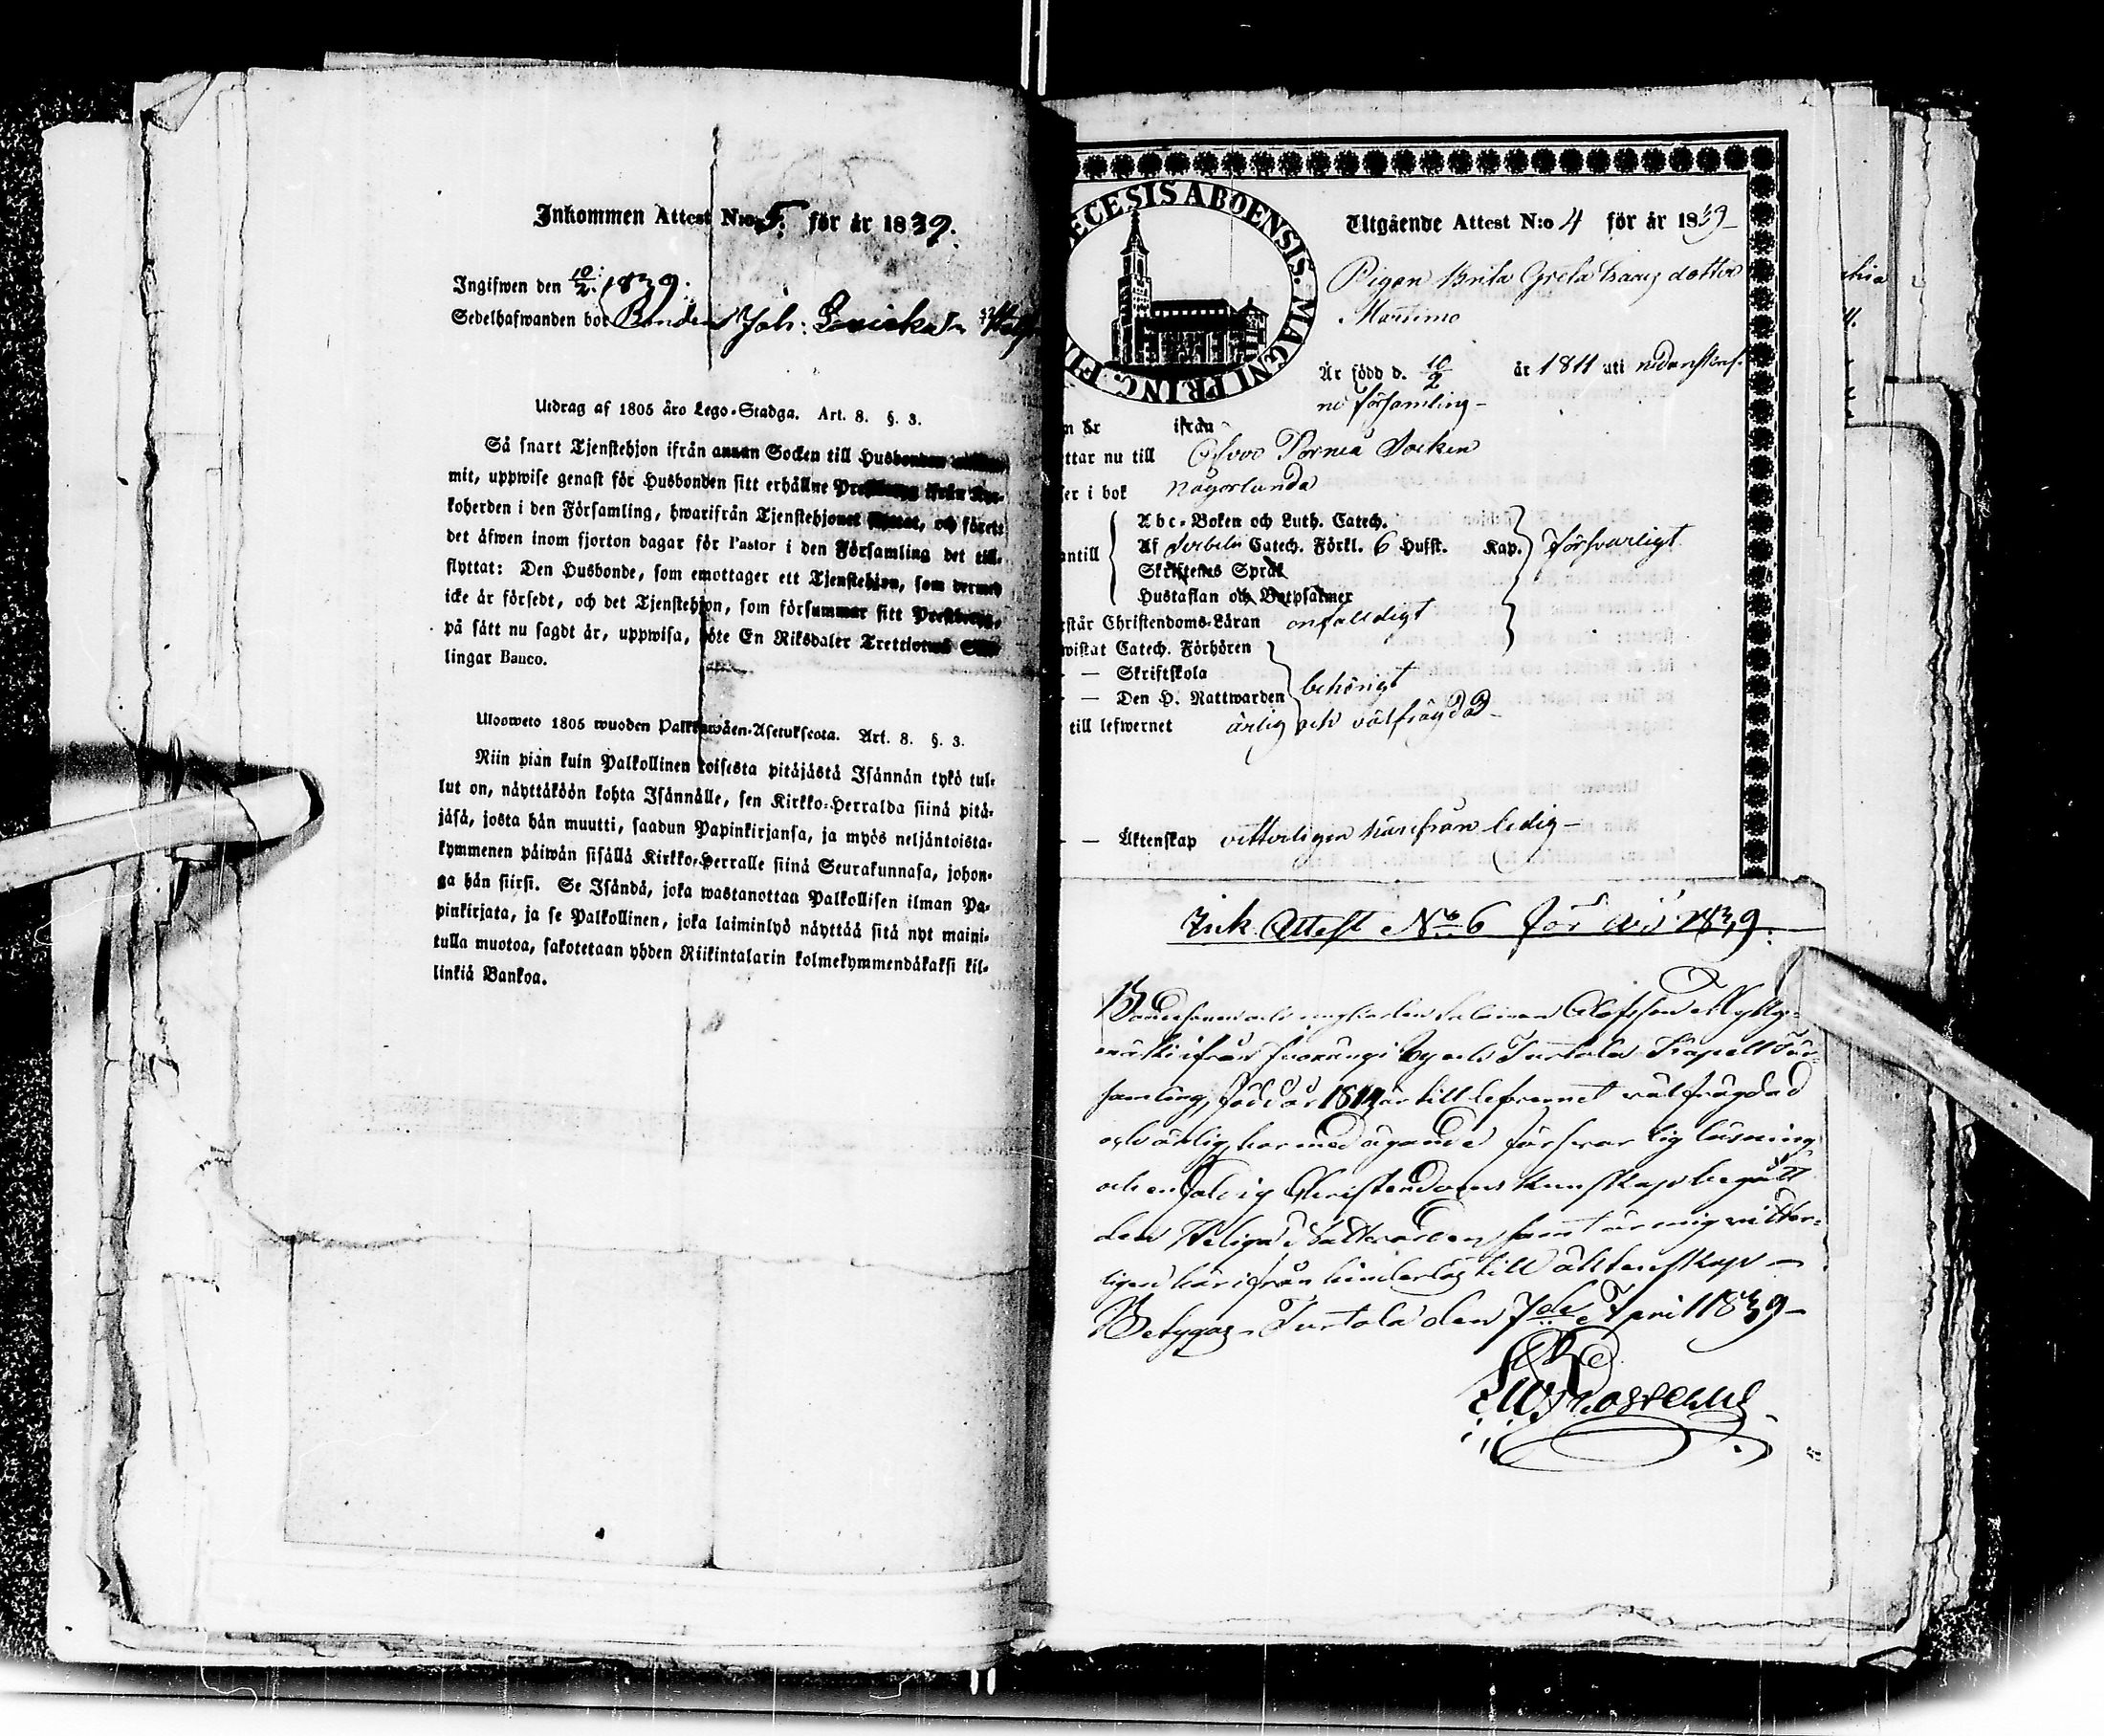 Inkommen Attest N:o 5. för år 1839.
Ingifwen den 10/2. 1839.
Sedelhafwanden bor Bonden Joh:
Utdrag af 1805 åro Lego-Stadga. Art. 8. §. 3.
Så snart Tjenstehjon ifrån annan Socken till Husbonden
mit, uppwise genast för Husbonden sitt erhållne ifrån Kyr-
koherden i den Församling, hwarifrån Tjenstehjonet och förete
det äfwen inom fjorton dagar för Pastor i den Församling det till-
flyttat: Den Husbonde, som emottager ett Tjenstehjon, som dermed
icke är försedt, och det Tjenstehjon, som försummar sitt
på sätt nu sagdt är, uppwisa, böte En Riksdaler Trettiotwå Skil-
lingar Banco.
Ulosweto 1805 wuoden Palkkawäen-Asetuksesta. Art. 8. §. 3.
Niin pian kuin Palkollinen toisesta pitäjästä Isännän tykö tul-
lut on, näyttäköön kohta Isännälle, sen Kirkko-Herralda siinä pitä-
jäsä, josta hän muutti, saadun Papinkirjansa, ja myös neljäntoista-
kymmenen päiwän sisällä Kirkko-Herralle siinä Seurakunnasa, johon-
ga hän siirsi. Se Isändä, joka wastanottaa Palkollisen ilman Pa-
pinkirjata, ja se Palkollinen, joka laiminlyö näyttää sitä nyt maini-
tulla muotoa, sakotetaan yhden Riikintalarin kolmekymmendäkaksi kil-
linkiä Bankoa.
ŒCESIS ABOENSIS. MAGNI PRINC. FIN
Utgående Attest N:o 4 för år 1839
Pigan Brita Greta Isaacs dotter
Är född d. 10/2 år 1811 uti nedanskref-
ne församling
n är ifrån
ttar nu till Öfver Torneå Socken
er i bok någorlunda
Abc-Boken och Luth. Catech.
antill Af Svebelii Catech. Förkl. 6 Hufst. Kap. försvarligt
Skriftenes Språk
Hustaflan och Botpsalmer
står Christendoms-Läran enfalldigt
wistat Catech. Förhören
— Skriftskola
— Den H. Nattwarden behörigt
till lefwernet ärlig och välfrägdad
— Äktenskap vetterligen härifrån ledig
Ink Attest No 6 för år 1839.
Bondesonen och ynglingen Salomon Olofsson
ifrån by och Turtola Kapell För-
samling, född år 1814 är till lefvernet välfrägdad
och ärlig, har med ägande försvarlig läsning
och enfaldig Christendoms kunskap begått
den Heliga Nattvarden, samt är mig vitter-
ligen härifrån hinderlös till äktenskap
Betygas Turtola den 7de April 1839